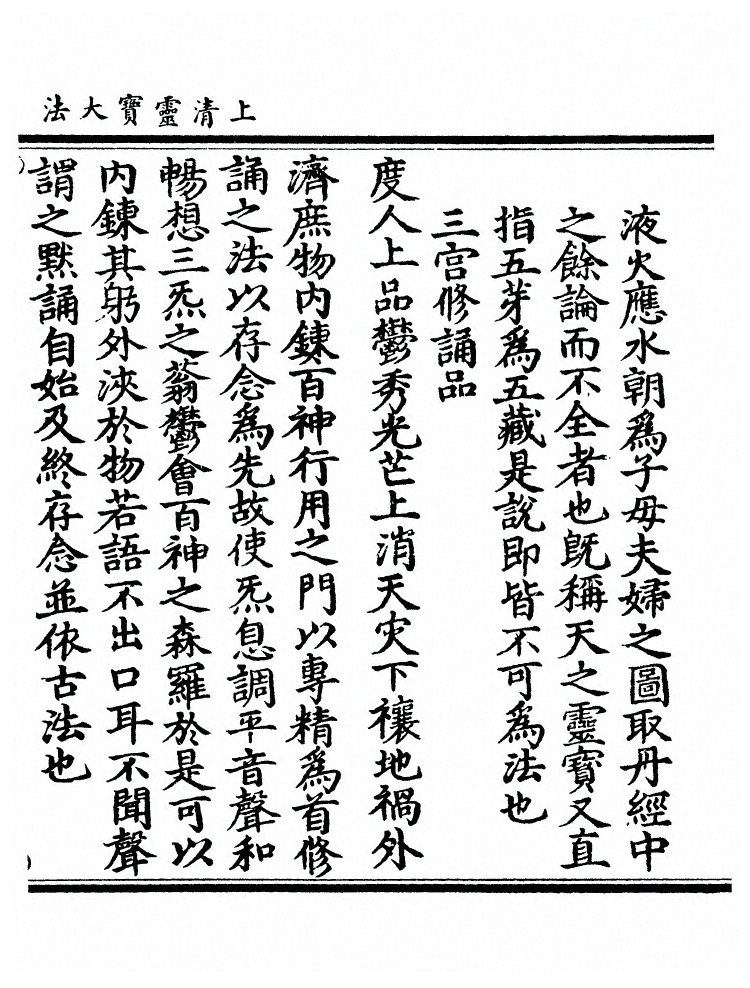 上清靈寶大法
液火應水朝爲子母夫婦之圖取丹經中
之餘論而不全者也旣稱天之靈寶又直
指五芽爲五藏是說即皆不可爲法也
三宮修誦品
度人上品鬱秀光芒上消天灾下禳地禍外
濟庶物內鍊百神行用之門以專精爲首修
誦之法以存念爲先故使炁息調平音聲和
暢想三炁之蓊鬱會百神之森羅於是可以
內鍊其躬外浹於物若語不出口耳不聞聲
謂之默誦自始及終存念並依古法也